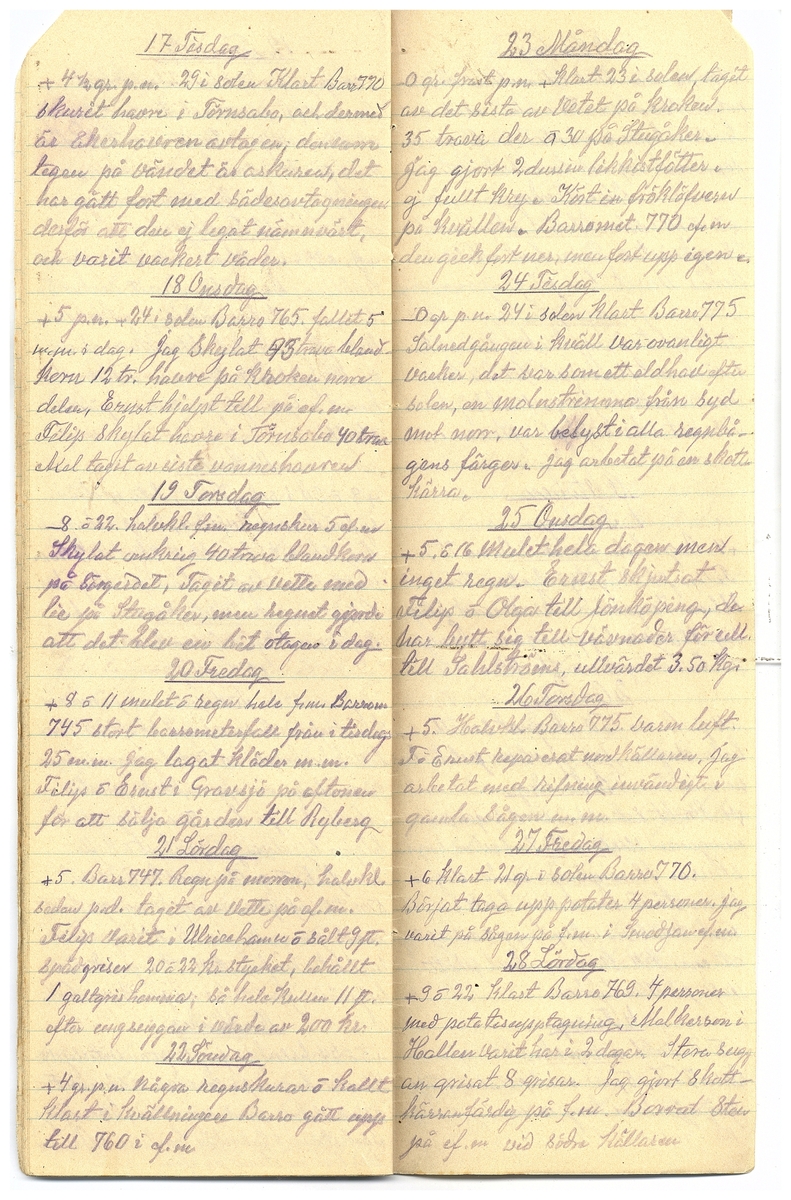 17 Tisdag
+ 4½ gr. p.n. 29 i solen Klart Barr 770
skurit havre i Törnsabo, och dermed
är åkerhavren avtagen, densamm
tegen på vändet är oskuren, det
har gått fort med sädesavtagningen
derför att den ej legat nämnvärt,
och varit vackert väder.
18 Onsdag
+5 p.n. +24 i solen Barro 765. fallit 5
m.m. i dag. Jag Skylat 93 trava bland
korn 12 tr. havre på Kroken norra
delen, Ernst hjelpt till på ef.m.
Filips skylat havre i Törnsabo 40 trav
Mel taget av sista
19 Torsdag
8 ö 22. halvkl. f.m. regnskur 5 ef.m
Skylat omkring 40 trava blandkorn
på Taget av vete med
lie på Stugåker, men regnet gjorde
att det blev en bit otagen i dag.
20 Fredag
+8 ö 11 mulet ö regn hela f.m. Barrom
745 stort barrometerfall från i tisdag
25 m.m. Jag lagat kläder m.m.
Filips ö Ernst i Gravsjö på aftonen
för att sälja gården till Ryberg
21 Lördag
+5. Barr 747. Regn på morron, halvkl.
sedan p.d. taget av vete på ef.m.
Filips varit i Ulricehamn ö sält 9 st.
spädgriser 20 ö 22 kr. stycket, behållt
1 galtgris hemma; så hela kullen 11 st.
efter ungsuggan i värde av 200 kr.
22 Söndag
+4 gr. p.n. några regnskurar ö kallt
klart i kvällningen Barro gått upp
till 760 i ef.m
23 Måndag
0 gr. frost p.n. + klart 23 i solen, taget
av det sista av Vetet på kroken.
35 trava der ö 30 på Stugåker.
Jag gjort 2 dussin
ej fullt kry. Kört in
på kvällen. Barromet. 770 ef.m
den geck fort ner, men fort upp igen
24 Tisdag
0 gr p.n. 24 i solen klart Barro 775
Solnedgången i kväll var ovanligt
vacker, det var som ett eldhav efter
solen, en molnstrimma från syd
mot norr, var belyst i alla regnbå-
gens färger. Jag arbetat på en skott-
kärra.
25 Onsdag
+5. ö 16 Mulet hela dagen men
inget regn. Ernst skjutsat
Filip ö Olga till Jönköping, de
har bytt sig till vävnader för ull
till Sahlströms, ullvärdet 3.50 kg.
26 Torsdag
+5. Halvkl. Barro 775. varm luft.
F ö Ernst reparerat norrkällaren, Jag
arbetat med rifning invändigt i
gamla sågen m.m.
27 Fredag
+6 klart 21 gr. i solen Barro 770.
Börjat taga upp potater 4 personer. jag
varit på sågen på f.m. i Smedjan ef.m
28 Lördag
+9 ö 22 Klart Barro 769. 4 personer
med potatisupptagning, Malkerson i
Hallen varit här i 2 dagar. Stora sugg
an grisat 8 grisar. Jag gjort skott-
kärran färdig på f.m. Borrat Sten
på ef.m vid södra källaren